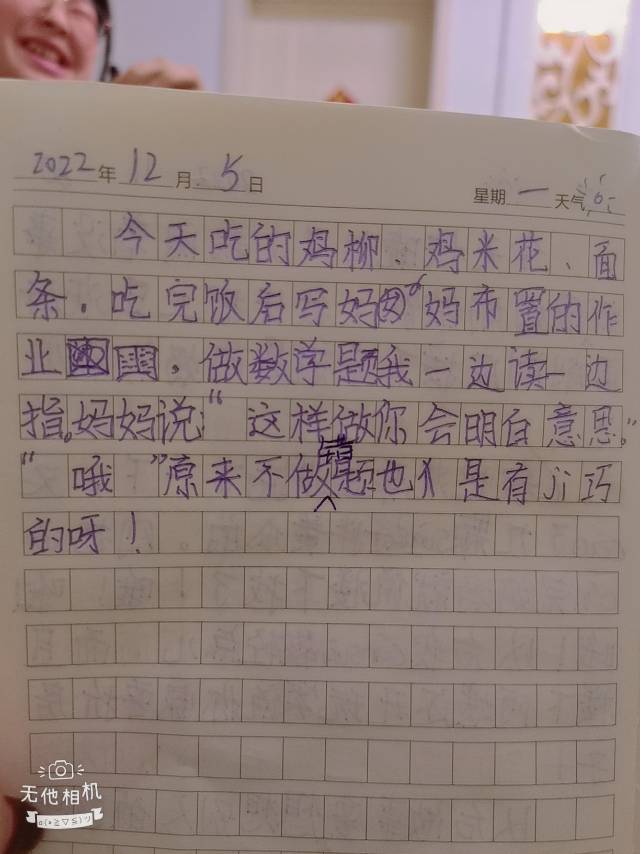 2022年 12月 5日 星期一 天气
今天吃的鸡柳、鸡米花、面
条，吃完饭后写妈妈布置的作
业，做数学题我一边读一边
指。妈妈说：“这样做你会明白意思。”
“哦”原来不做错题也是有jì巧
的呀！
无他相机